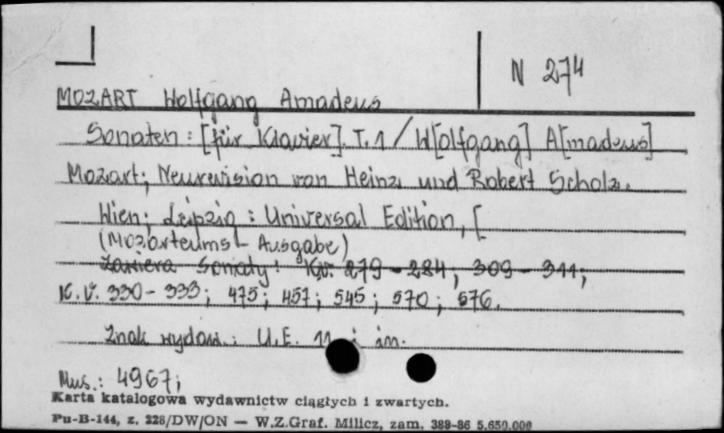 N 274
MOZART Wolfgang Amadeus
Sonaten : [für Klavier]. T. 1 / W[olfgang] A[madeus]
Mozart; Neurevision von Heinz und Robert Scholz.
Wien; Leipzig : Universal Edition, [
(Mozarteums - Ausgabe)
Zawiera Sonaty: K.V. 279 - 284; 309 - 311;
K.V. 330 - 333; 475; 457; 545; 570; 576.
Znak wydaw.: U.E. 11 i in.
Mus.: 4967;
Karta katalogowa wydawnictw ciągłych i zwartych.
Pu-B-144, z. 228/DW/ON — W.Z.Graf. Milicz, zam. 389-86 5.650.000